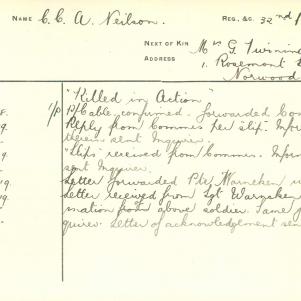 NAME C. C. A. Neilson. REG., &C. 32nd
NEXT OF KIN Mrs G. Twining
ADDRESS 1, Rosemont
Norwood
"Killed in Action"
8. 1/P cable, confirmed. forwarded
9. Reply from Commns per slip. Infor
therein sent Inquirer.
9. "Slips" received from Commns. Infor
sent Inquirer.
9. Letter forwarded Pte Warneken
19. Letter received from Sgt Warneken
9. mation from above soldier. Same
quirer. Letter of acknowledgment sen